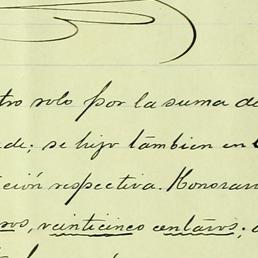 tro solo por la suma de
de; se hijo tambien en
ción respectiva. Honorar
sos, veinticinco centavos;